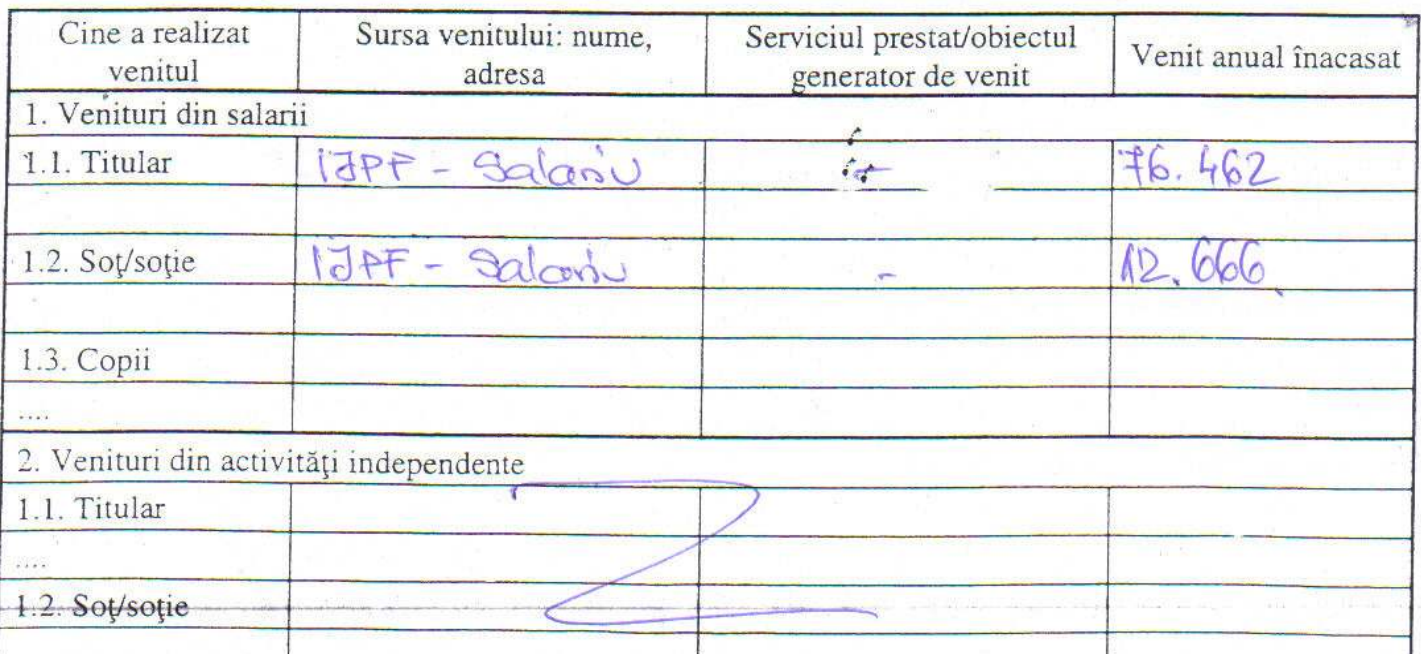 Cine a realizat venitul
Sursa venitului: nume, adresa
Serviciul prestat/obiectul generator de venit
Venit anual înacasat
1. Venituri din salarii
1.1. Titular IJPF - Salariu - 76.462
1.2. Soţ/soţie IJPF - Salariu - 12.666
1.3. Copii
....
2. Venituri din activităţi independente
1.1. Titular
....
1.2. Soţ/soţie